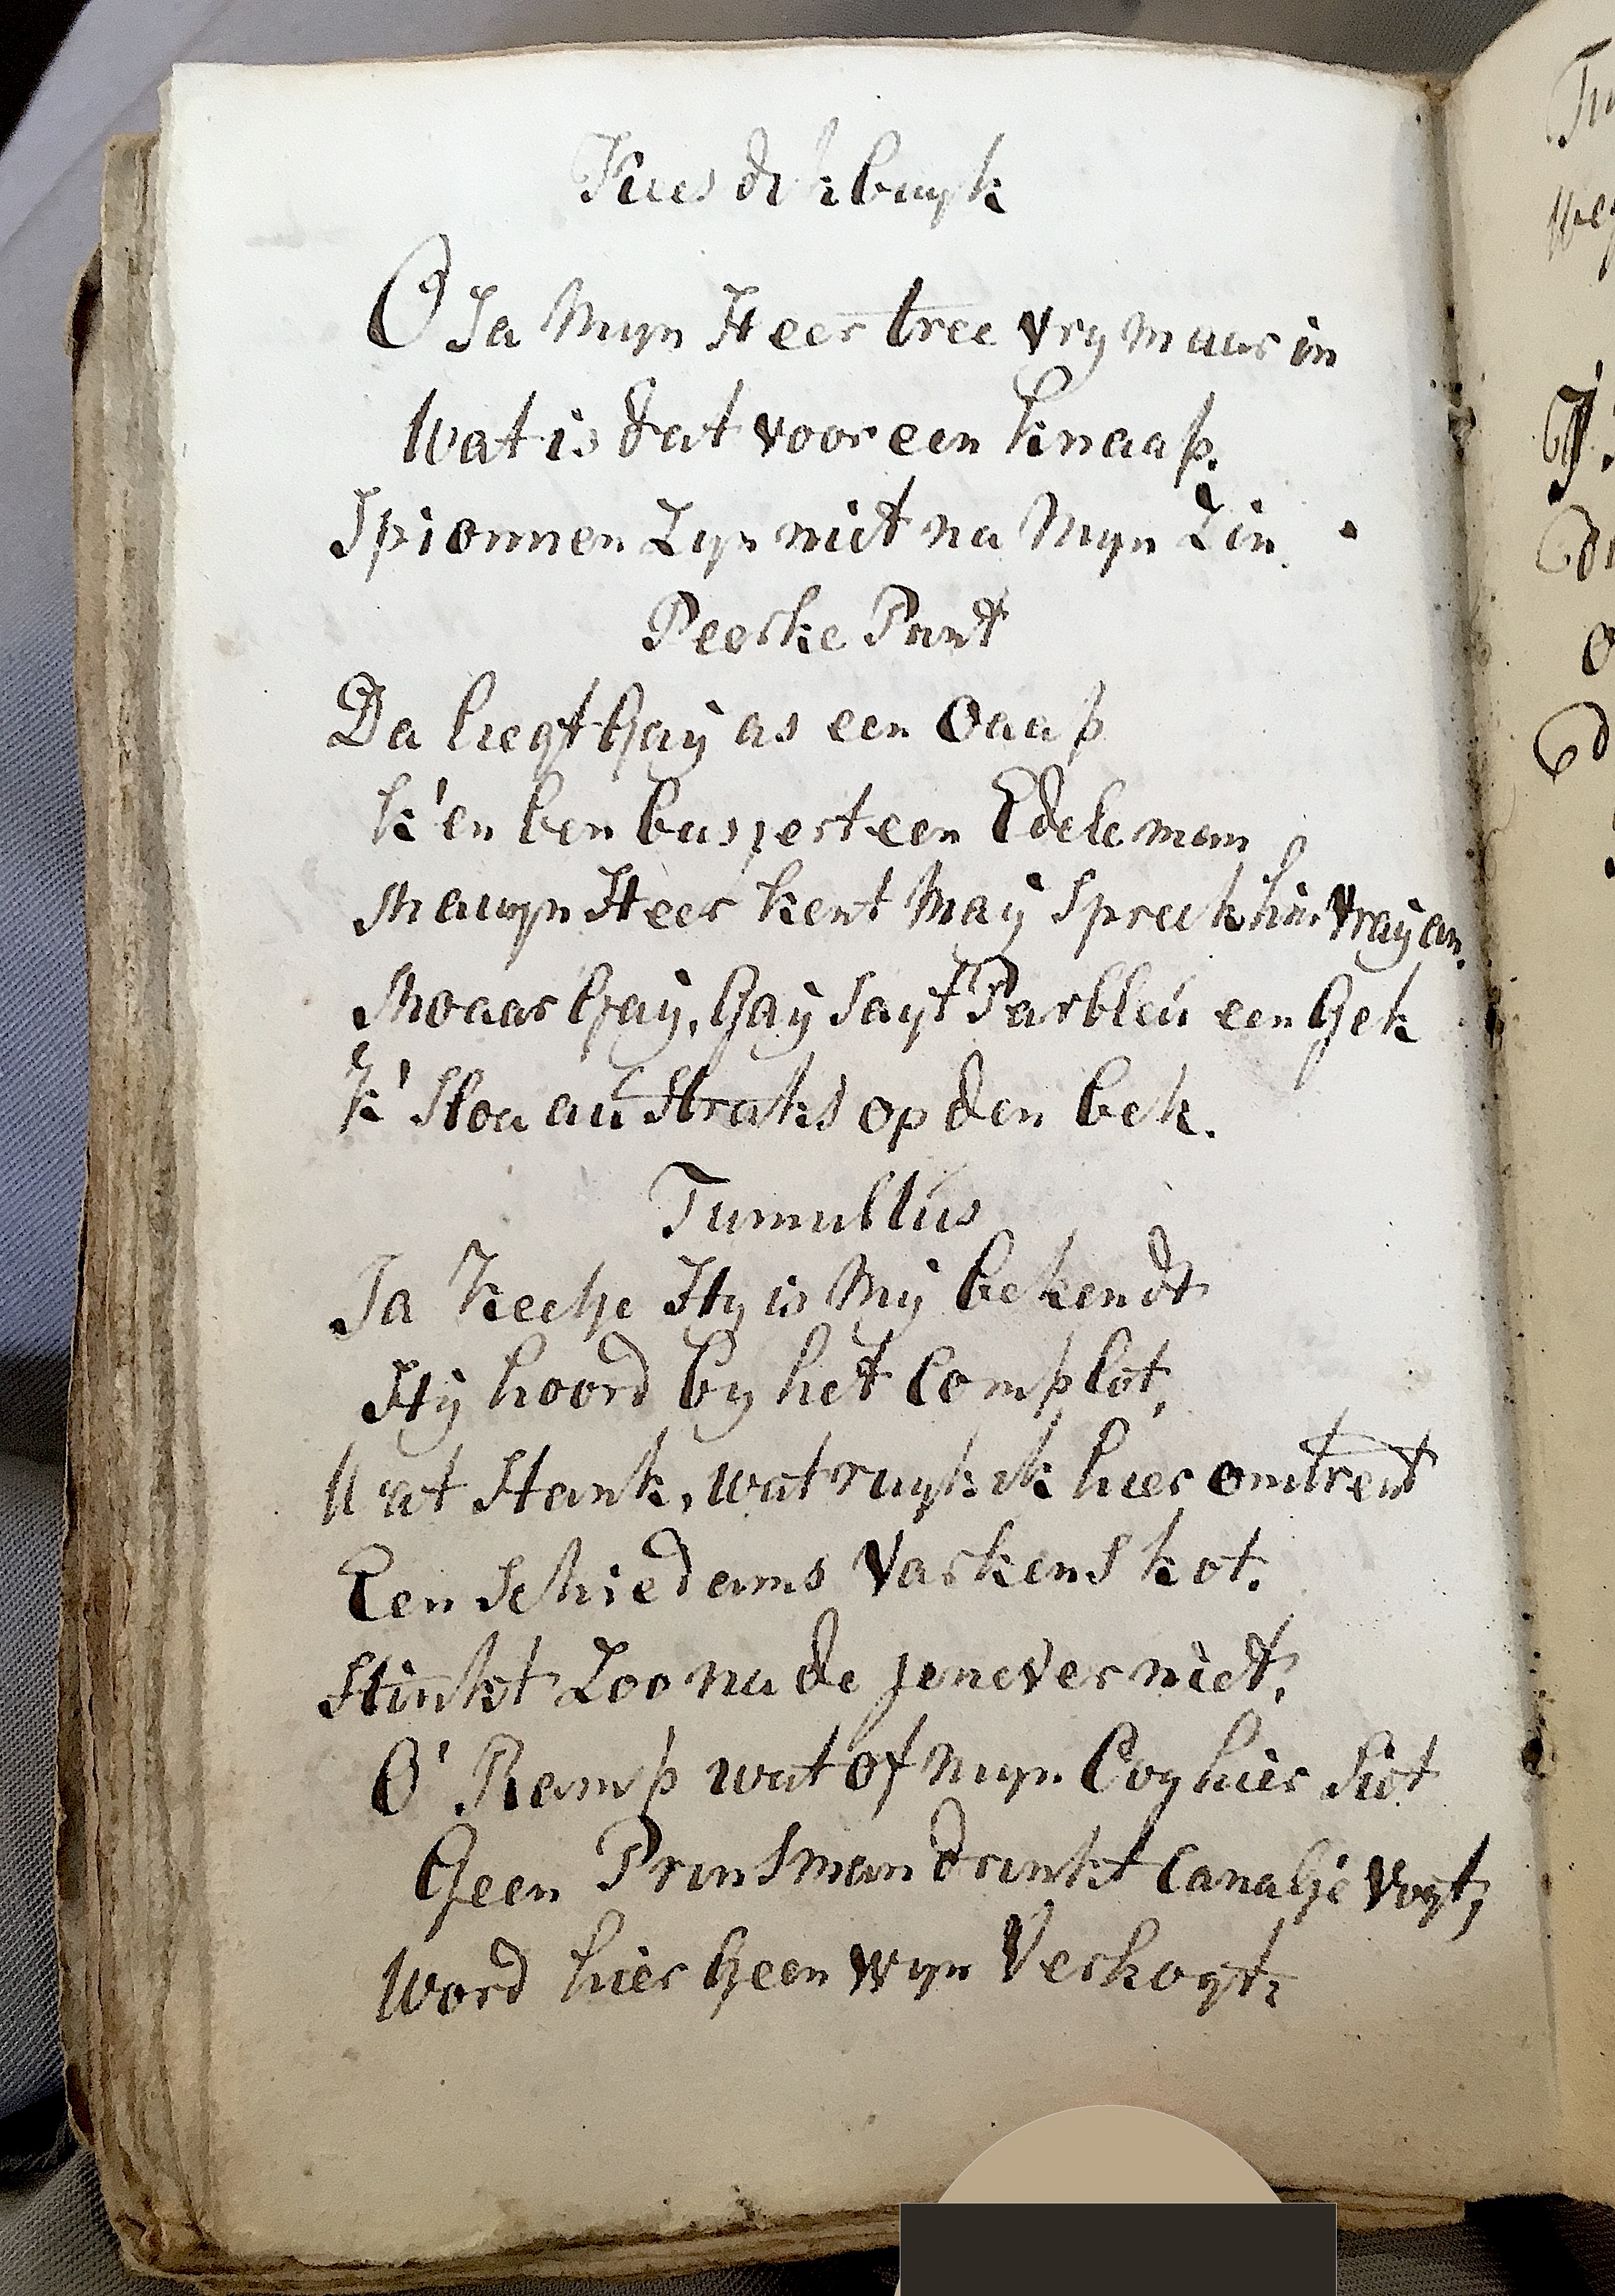 Kees dikbuyk
O Ja Myn Heer tree vry maar in
Wat is dat voor een knaap.
Spionnen Zyn niet na Myn Zin.
Peerke Pront
Da liegt Gaÿ as een Oaap
k'en ben buspert een Edeleman
Maayn Heer kent Maÿ Spreek hier Vraÿ an.
Moaar Gaÿ, Gaÿ Sayt Parbleú een Gek
k' Sloa aú Straks op den bek.
Tumultús
Ja Keetje Hy is Mÿ bekendt
Hÿ hoord by het Complot,
Wat Stank, wat ruyk ik hier omtrent
Een Schiedams Varkens kot.
Stinkt Zoo na de jenever niet,
O' Ramp wat of myn Oog hier Siet
Geen Prinsman drinkt Canalje Vogt,
Word hier Geen Wyn Verkogt;